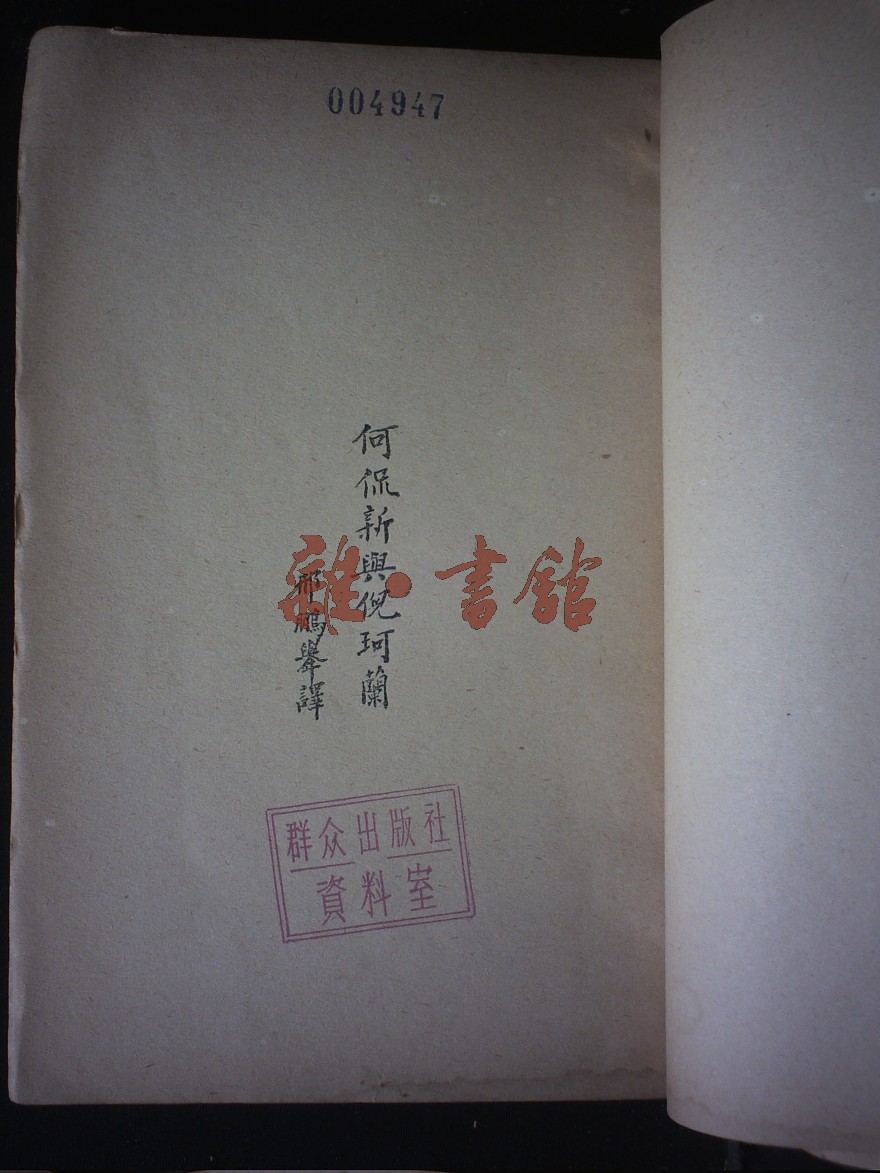 004947
何侃新與倪珂蘭
邢鵬舉譯
雜·書館
群众出版社
資料室